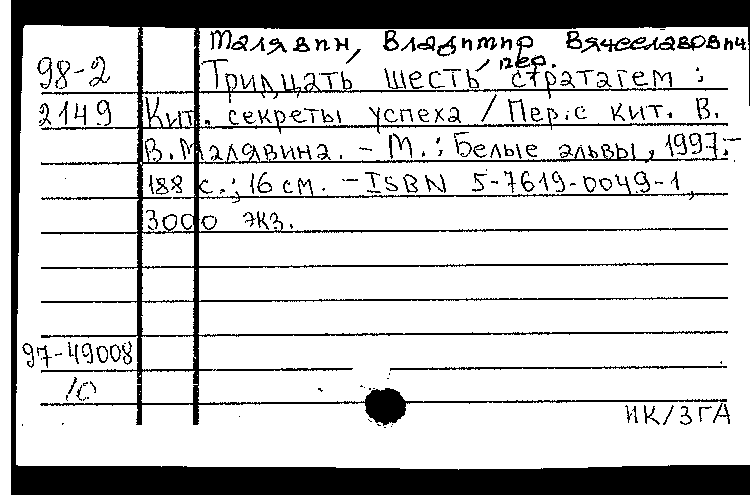 Малявин, Владимир Вячеславович,
пер.
98-2 Тридцать шесть стратагем :
2149 Кит. секреты успеха / Пер. с кит. В.
В. Малявина. - М. : Белые альвы, 1997. -
188 с. ; 16 см. - ISBN 5-7619-0049-1,
3000 экз.
97-49008
ИК/ЗГА